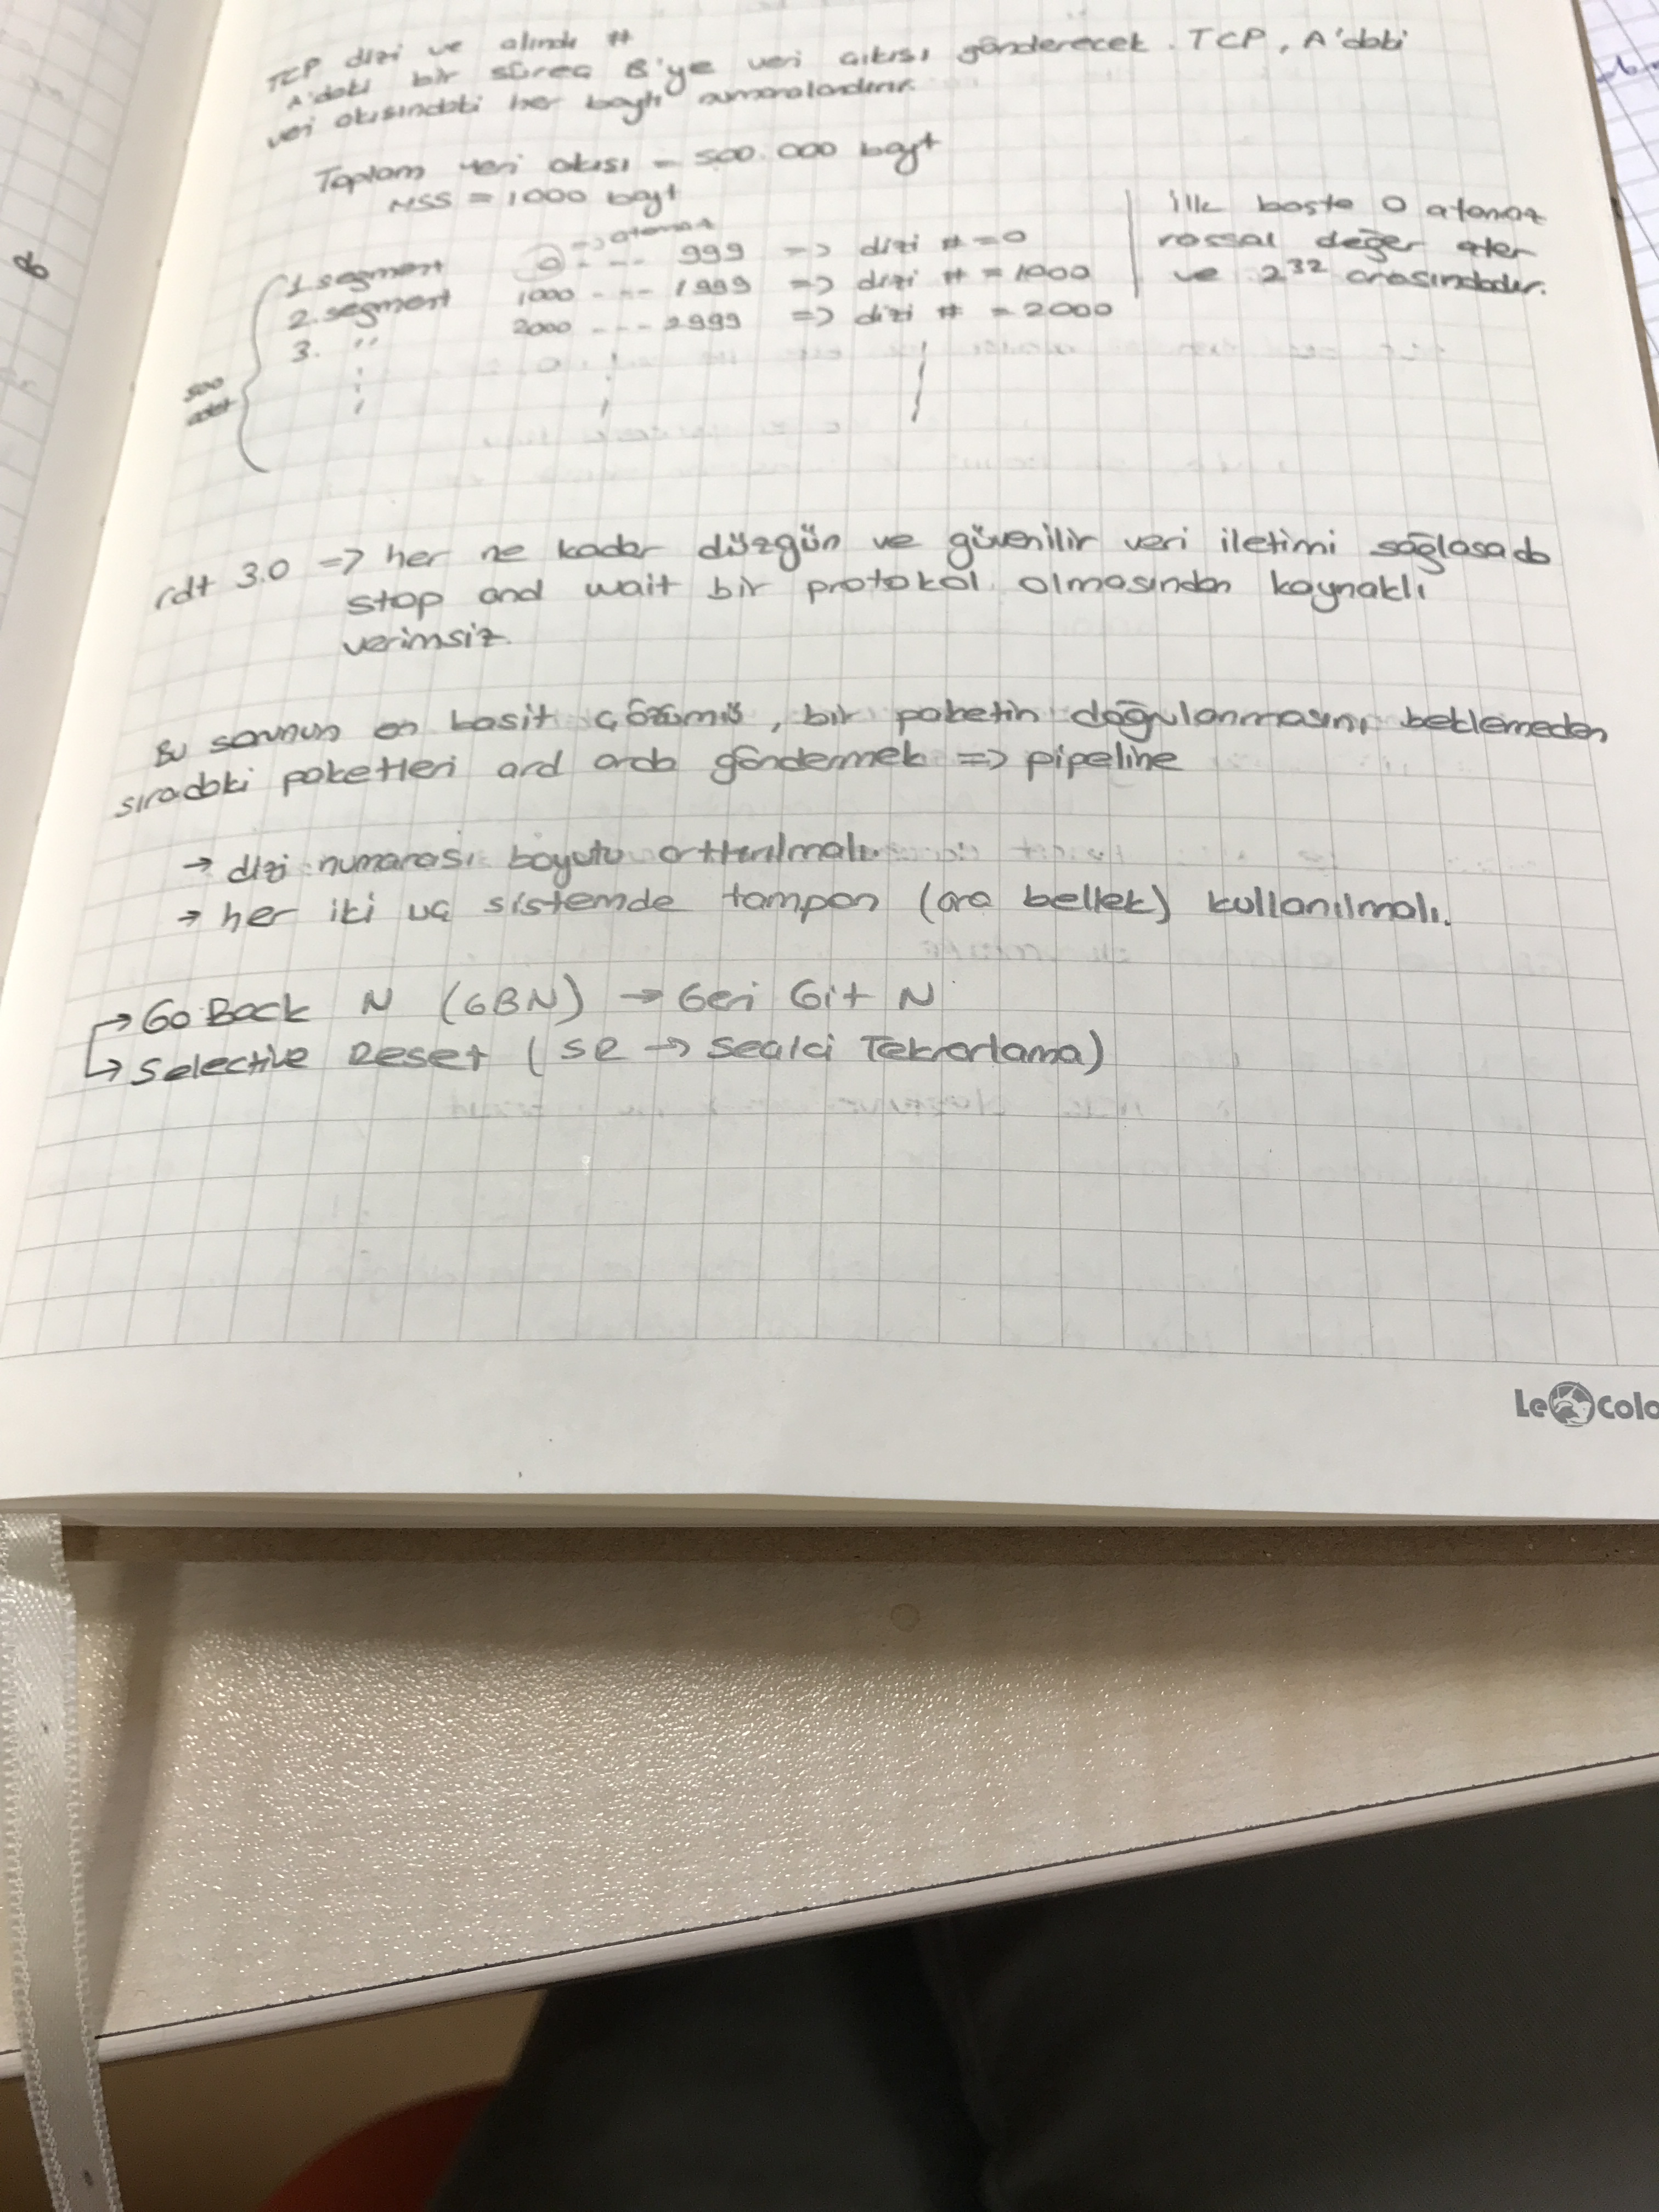 TCP dizi ve alındı #
A'daki bir süreç B'ye veri akışı gönderecek. TCP, A'daki
veri akısındaki her baytı numaralandırır.
Toplam veri akısı = 500.000 bayt
MSS = 1000 bayt
=> atamaz
1. segment 0 - - - 999 => dizi # = 0
2. segment 1000 - - - 1999 => dizi # = 1000
3. '' 2000 - - - 2999 => dizi # = 2000
500 adet
ilk başta 0 atamaz
rassal değer atar
ve 2³² arasındadır.
rdt 3.0 => her ne kadar düzgün ve güvenilir veri iletimi sağlasada
stop and wait bir protokol olmasından kaynaklı
verimsiz.
Bu sorunun en basit çözümü, bir paketin doğrulanmasını beklemeden
sıradaki paketleri ard arda göndermek => pipeline
→ dizi numarası boyutu arttırılmalı.
→ her iki uç sistemde tampon (ara bellek) kullanılmalı.
→ Go Back N (GBN) → Geri Git N
→ Selective Reset (SR → Seçici Tekrarlama)
Le Colo